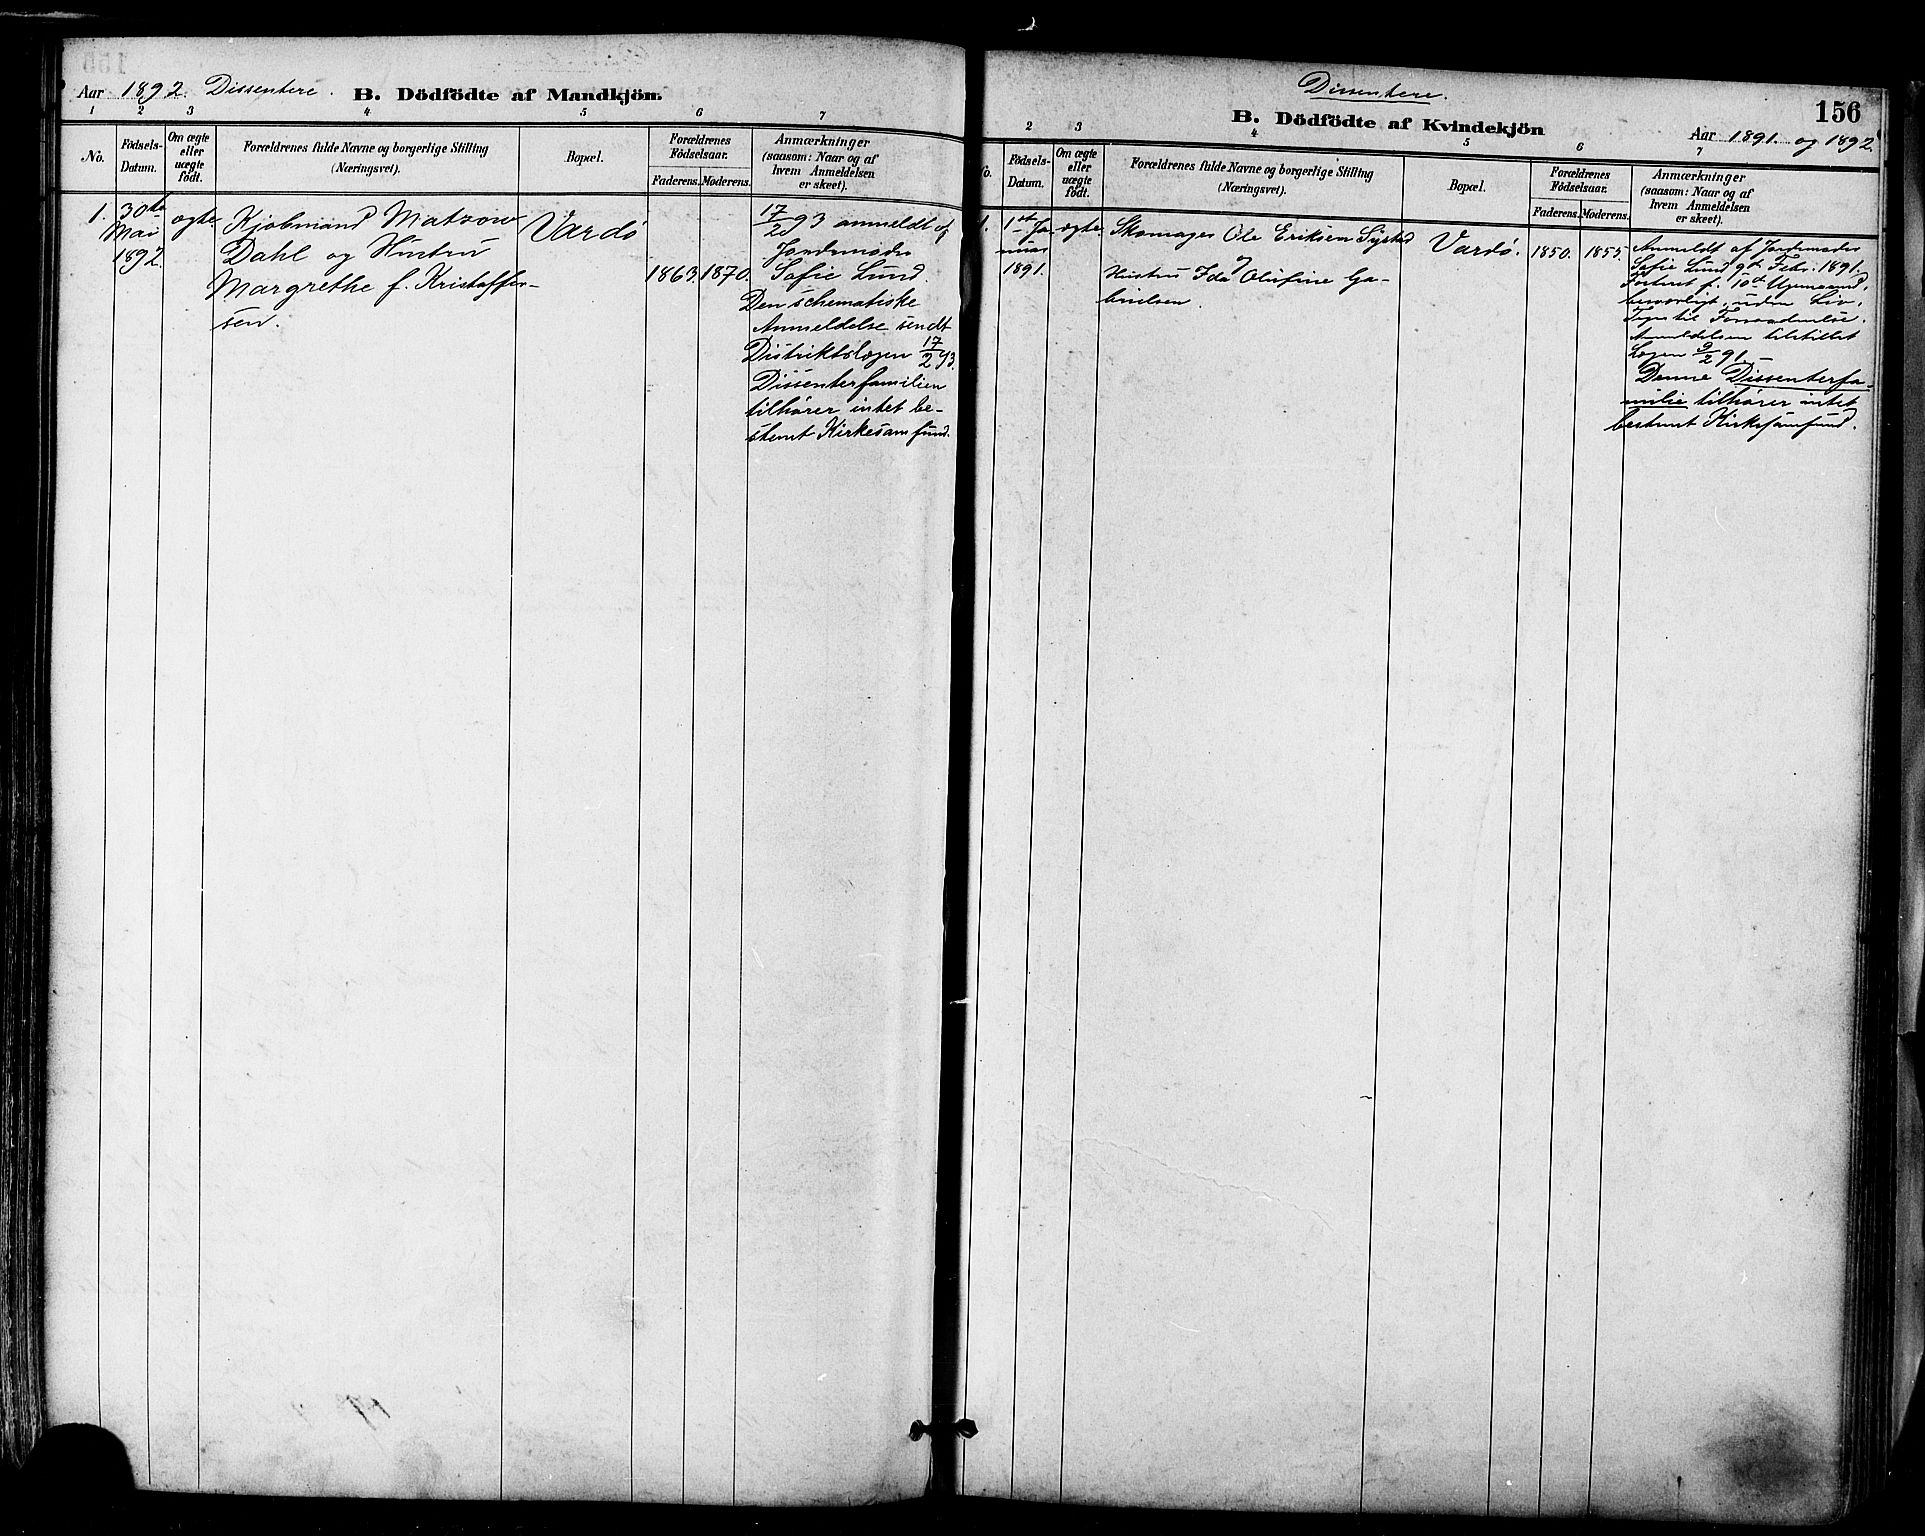 Aar 1892. Dissentere. B. Dödfödte af Mandkjön.
1 2 3 4 5 6 7
No.
Födsels-
Datum.
Om ægte
eller
uægte
födt.
Forældrenes fulde Navne og borgerlige Stilling
(Næringsvei).
Bopæl.
Forældrenes
Födselsaar.
Faderens. Moderens.
Anmærkninger
(saasom: Naar og af
hvem Anmeldelsen
er skeet).
1.
30te
Mai
1892.
ægte.
Kjøbmand Matzow
Dahl og Hustru
Margrethe f. Kristoffer-
sen.
Vardø
1863. 1870.
17/2 93 anmeldt af
Jordemoder
Sofie Lund.
Den schematiske
Anmeldelse sendt
Distriktslægen 17/2 93.
Dissenterfamilien
tilhører intet be-
stemt Kirkesamfund.
Dissentere.
156
B. Dödfödte af Kvindekjön
Aar 1891. og 1892.
2 3 4 5 6 7
Födsels-
Datum.
Om ægte
eller
uægte
födt.
Forældrenes fulde Navne og borgerlige Stilling
(Næringsvei).
Bopæl.
Forældrenes
Födselsaar.
Faderens. Moderens.
Anmærkninger
(saasom: Naar og af
hvem Anmeldelsen
er skeet).
1.
1st Ja-
nuar
1891.
ægte.
Skomager Ole Eriksen
Hustru Ida Olufine Ga-
brielsen.
Vardø.
1850. 1855.
Anmeldt af Jordemoder
Sofie Lund 9de Febr. 1891.
uden Liv.
Tegn til Forraadnelse.
Anmeldelsen tilstillet
Lægen 9/2 91.
Denne Dissenterfa-
milie tilhører intet
bestemt Kirkesamfund.